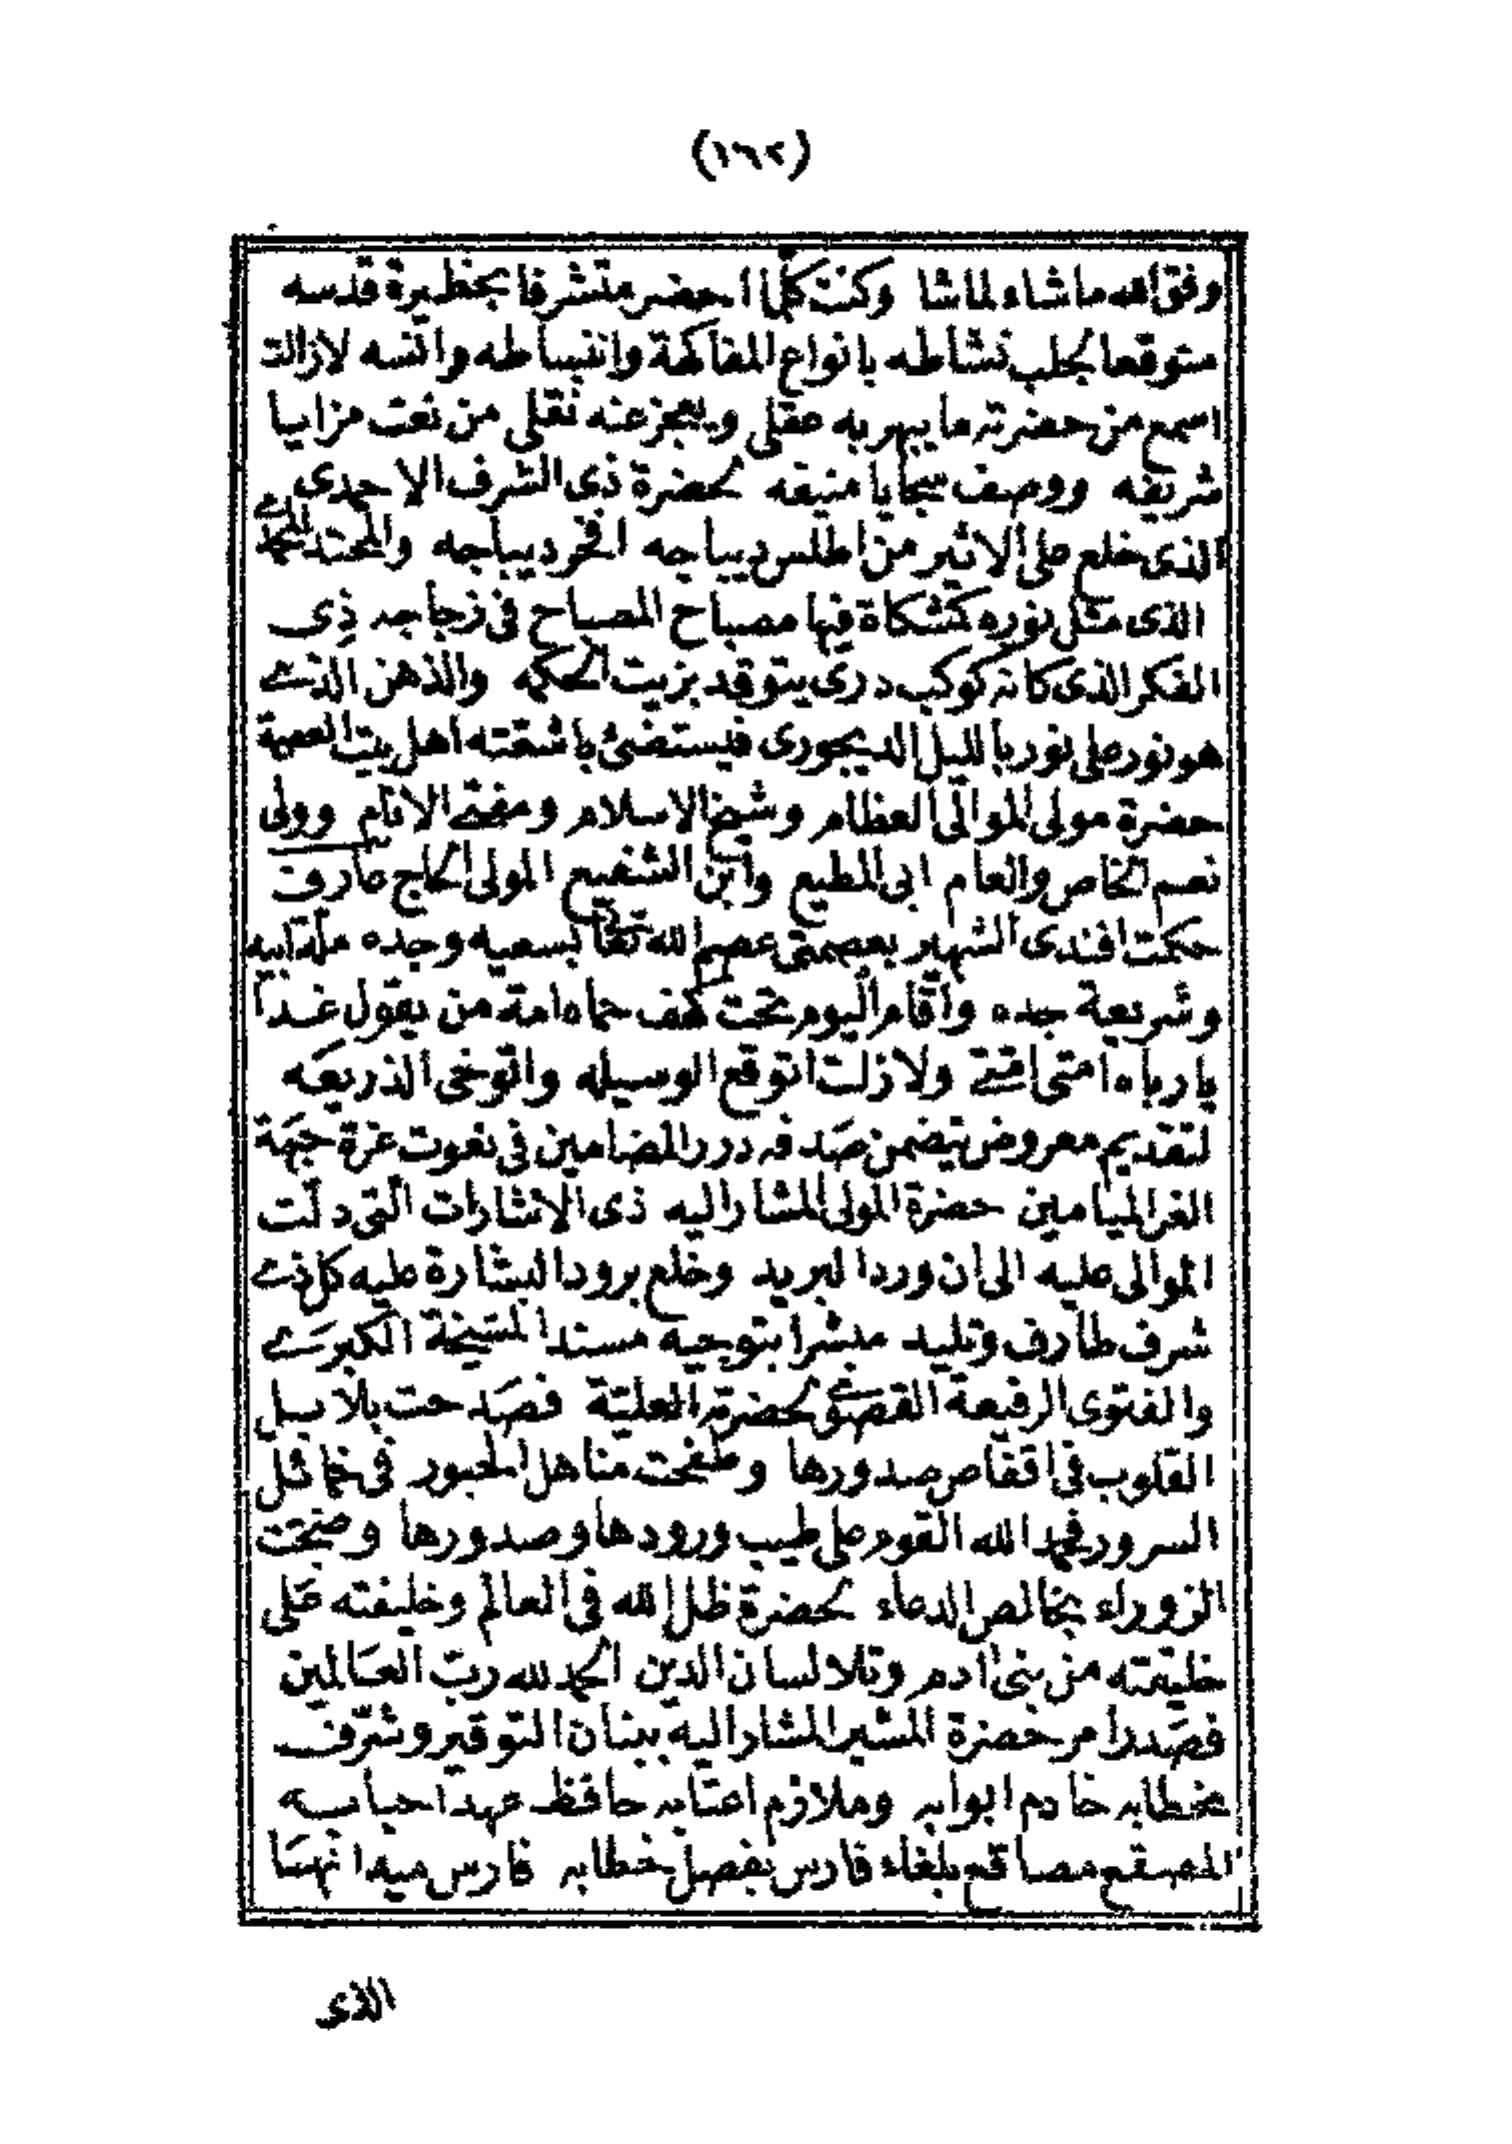 (١٦٢)
وفق الله ما شاء لما شا وكنت كلما احضر متشرفا بحظيرة قدسه
متوقعا لجلب نشاطه بانواع المفاكهة وانبساطه وانسه لازالت
اسمع من حضرته ما يبهر به عقلى ويعجز عنه نقلى من نعت مزايا
شريفه ووصف سجايا منيفه لحضرة ذى الشرف الاحمدى
الذى خلع على الاثير من اطلس ديباجه افخر ديباجه والمحتد المحمدى
الذى مثل نوره كمشكاة فيها مصباح المصباح فى زجاجه ذى
الفكر الذى كانه كوكب درى يتوقد بزيت الحكمه والذهن الذى
هو نور على نور بالليل الديجورى فيستضئ باشعته اهل بيت العصمة
حضرة مولى الموالى العظام وشيخ الاسلام ومفتى الانام وولى
نعم الخاص والعام ابى المطيع وابن الشفيع المولى الحاج عارف
حكمت افندى الشهير بعصمتى عصم الله تعالى بسعيه وجده ملة ابيه
وشريعة جده واقام اليوم تحت كهف حماه امة من يقول غدا
يا رباه امتى امتى ولا زلت اتوقع الوسيله واتوخى الذريعه
لتقديم معروض يتضمن صدفه درر المضامين فى نعوت غرة جبهة
الغر الميامين حضرة المولى المشار اليه ذى الاشارات التى دلت
الموالى عليه الى ان ورد البريد وخلع برود البشارة عليه كل ذى
شرف طارف وتليد مبشرا بتوجيه مسند المشيخة الكبرى
والفتوى الرفيعة القصوى لحضرته العليّة فصدحت بلابيل
القلوب فى اقفاص صدورها وطفحت مناهل الحبور فى خمائل
السرور فحمد الله القوم على طيب ورودها وصدورها وضجت
الزوراء بخالص الدعاء لحضرة ظل الله فى العالم وخليفته على
خليقته من بنى ادم وتلا لسان الدين الحمد لله ربّ العالمين
فصدر امر حضرة المشير المشار اليه ببنان التوقير وشرّف
بخطابه خادم ابوابه وملازم اعتابه حافظ عهد احبابه
المصقع مصاقع بلغاء فارس بفصل خطابه فارس ميدانها
الذى